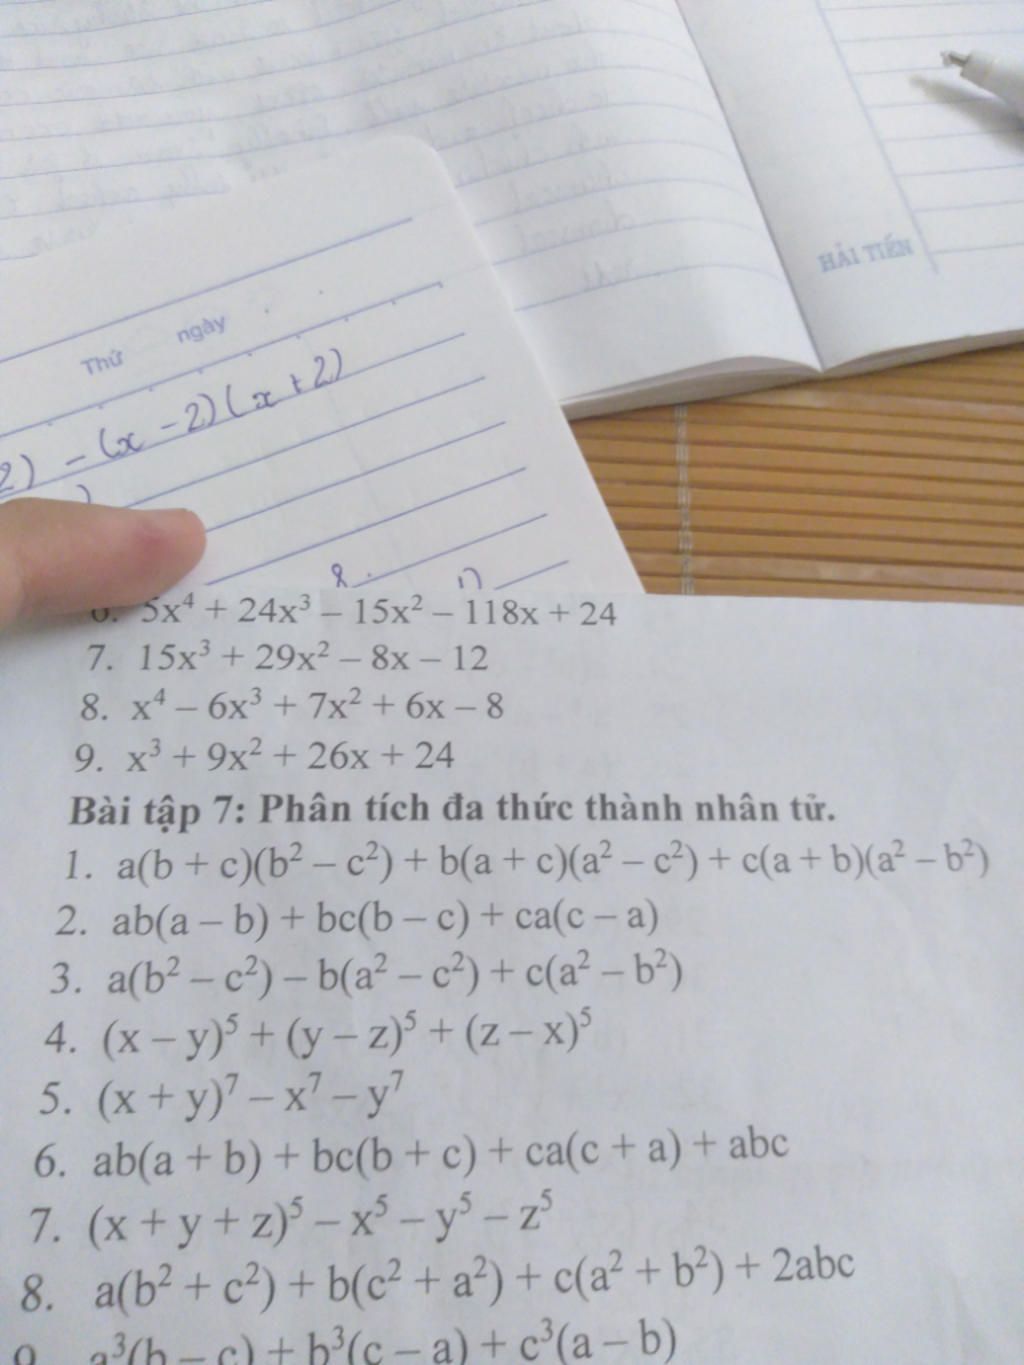 HẢI TIẾN
Thứ ngày
2) – (x – 2)(x + 2)
)
6. 5x⁴ + 24x³ – 15x² – 118x + 24
7. 15x³ + 29x² – 8x – 12
8. x⁴ – 6x³ + 7x² + 6x – 8
9. x³ + 9x² + 26x + 24
Bài tập 7: Phân tích đa thức thành nhân tử.
1. a(b + c)(b² – c²) + b(a + c)(a² – c²) + c(a + b)(a² – b²)
2. ab(a – b) + bc(b – c) + ca(c – a)
3. a(b² – c²) – b(a² – c²) + c(a² – b²)
4. (x – y)⁵ + (y – z)⁵ + (z – x)⁵
5. (x + y)⁷ – x⁷ – y⁷
6. ab(a + b) + bc(b + c) + ca(c + a) + abc
7. (x + y + z)⁵ – x⁵ – y⁵ – z⁵
8. a(b² + c²) + b(c² + a²) + c(a² + b²) + 2abc
9. a³(b – c) + b³(c – a) + c³(a – b)